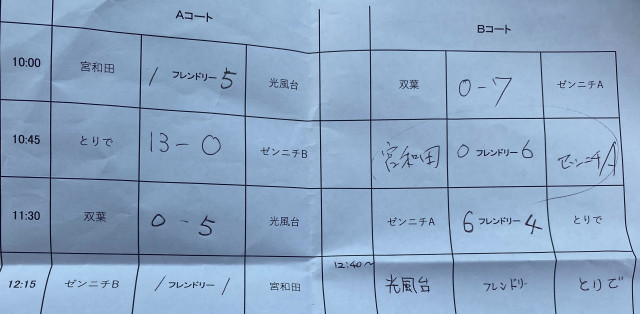 Aコート Bコート
10:00 宮和田 1 フレンドリー 5 光風台 双葉 0-7 ゼンニチA
10:45 とりで 13-0 ゼンニチB 宮和田 0 フレンドリー 6 ゼンニチA
11:30 双葉 0-5 光風台 ゼンニチA 6 フレンドリー 4 とりで
12:40~
12:15 ゼンニチB 1 フレンドリー 1 宮和田 光風台 フレンドリー とりで